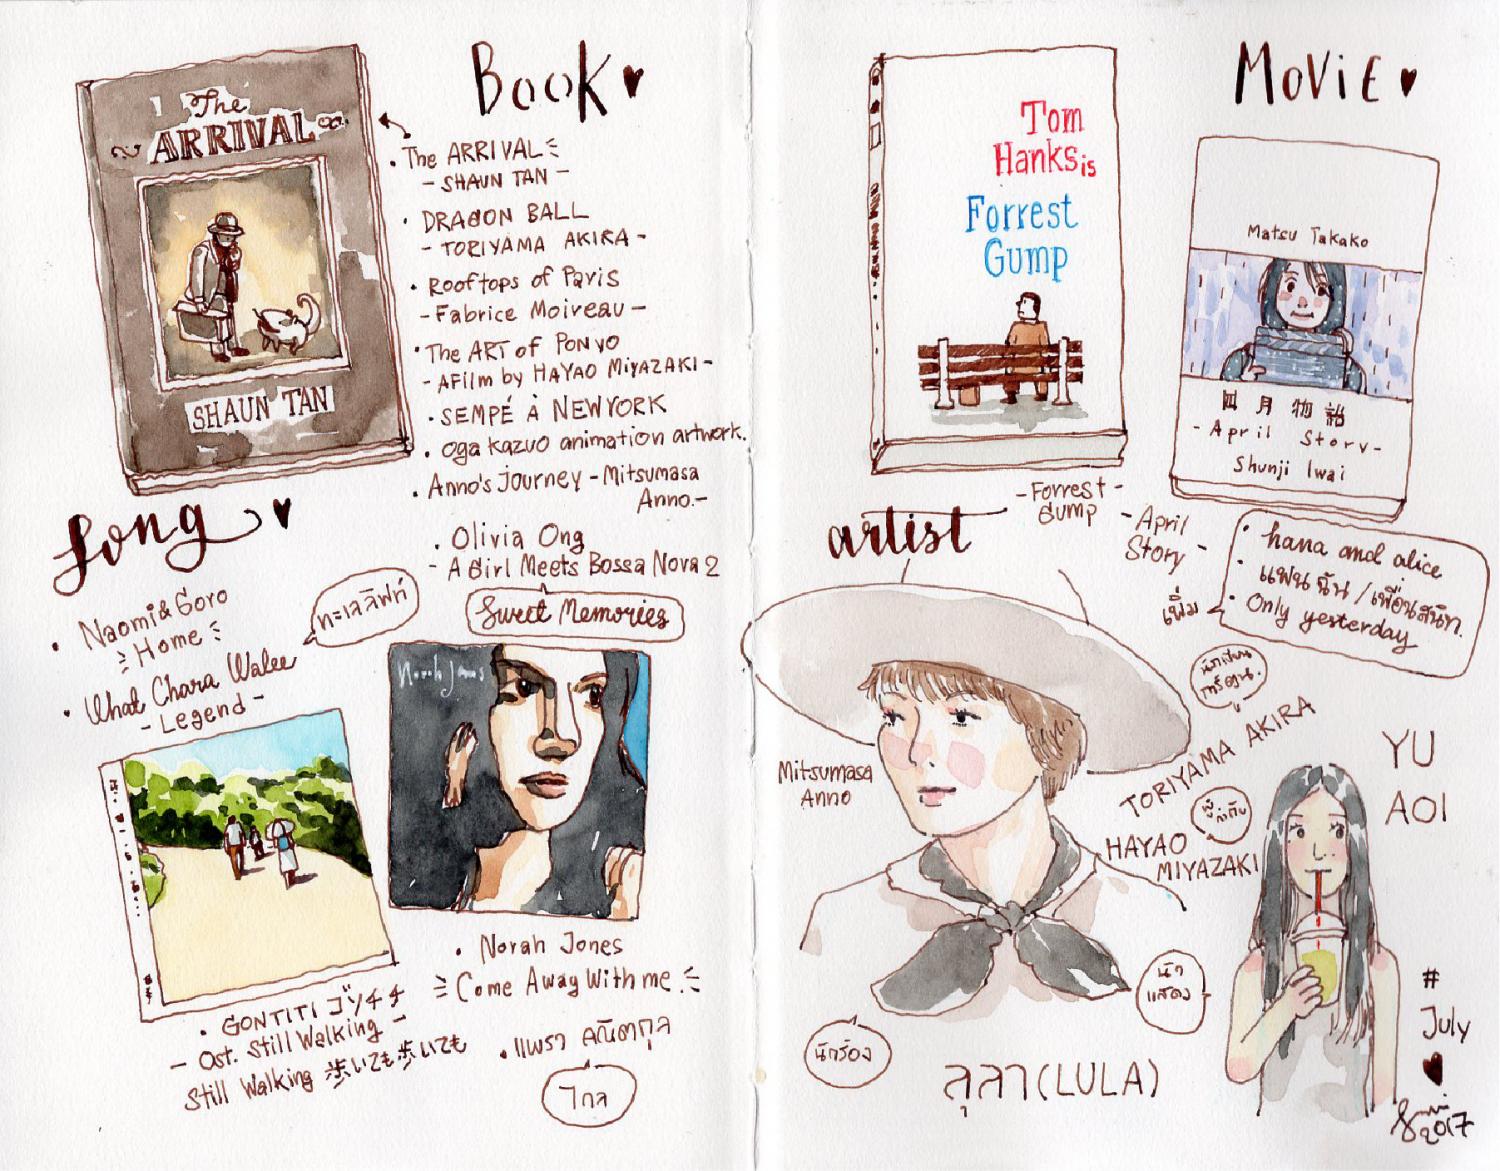 Book
The
ARRIVAL
SHAUN TAN
The ARRIVAL
- SHAUN TAN -
DRAGON BALL
- TORIYAMA AKIRA -
Rooftops of Paris
- Fabrice Moireau -
The ART of PONYO
- A Film by HAYAO MIYAZAKI -
SEMPÉ À NEW YORK
Oga Kazuo animation artwork.
Anno's Journey - Mitsumasa
Anno. -
Song
Naomi & Goro
Home
ทะเลลิฟท์
What Chara Walee
- Legend -
Olivia Ong
- A Girl Meets Bossa Nova 2
Sweet Memories
Norah Jones
Norah Jones
Come Away With me.
GONTITI ゴンチチ
- Ost. Still Walking -
Still Walking 歩いても歩いても
แพรว คณิตกุล
ไกล
MOVIE
Tom
Hanks is
Forrest
Gump
Matsu Takako
四月物語
- April Story -
Shunji Iwai
- Forrest -
Gump
- April
Story -
เพิ่ม
hana and alice
แฟนฉัน / เพื่อนสนิท.
Only yesterday
artist
Mitsumasa
Anno
นักเขียน
การ์ตูน.
TORIYAMA AKIRA
ผู้กำกับ
HAYAO
MIYAZAKI
YU
AOI
นัก
แสดง
นักร้อง
ลุลา (LULA)
#
July
2017